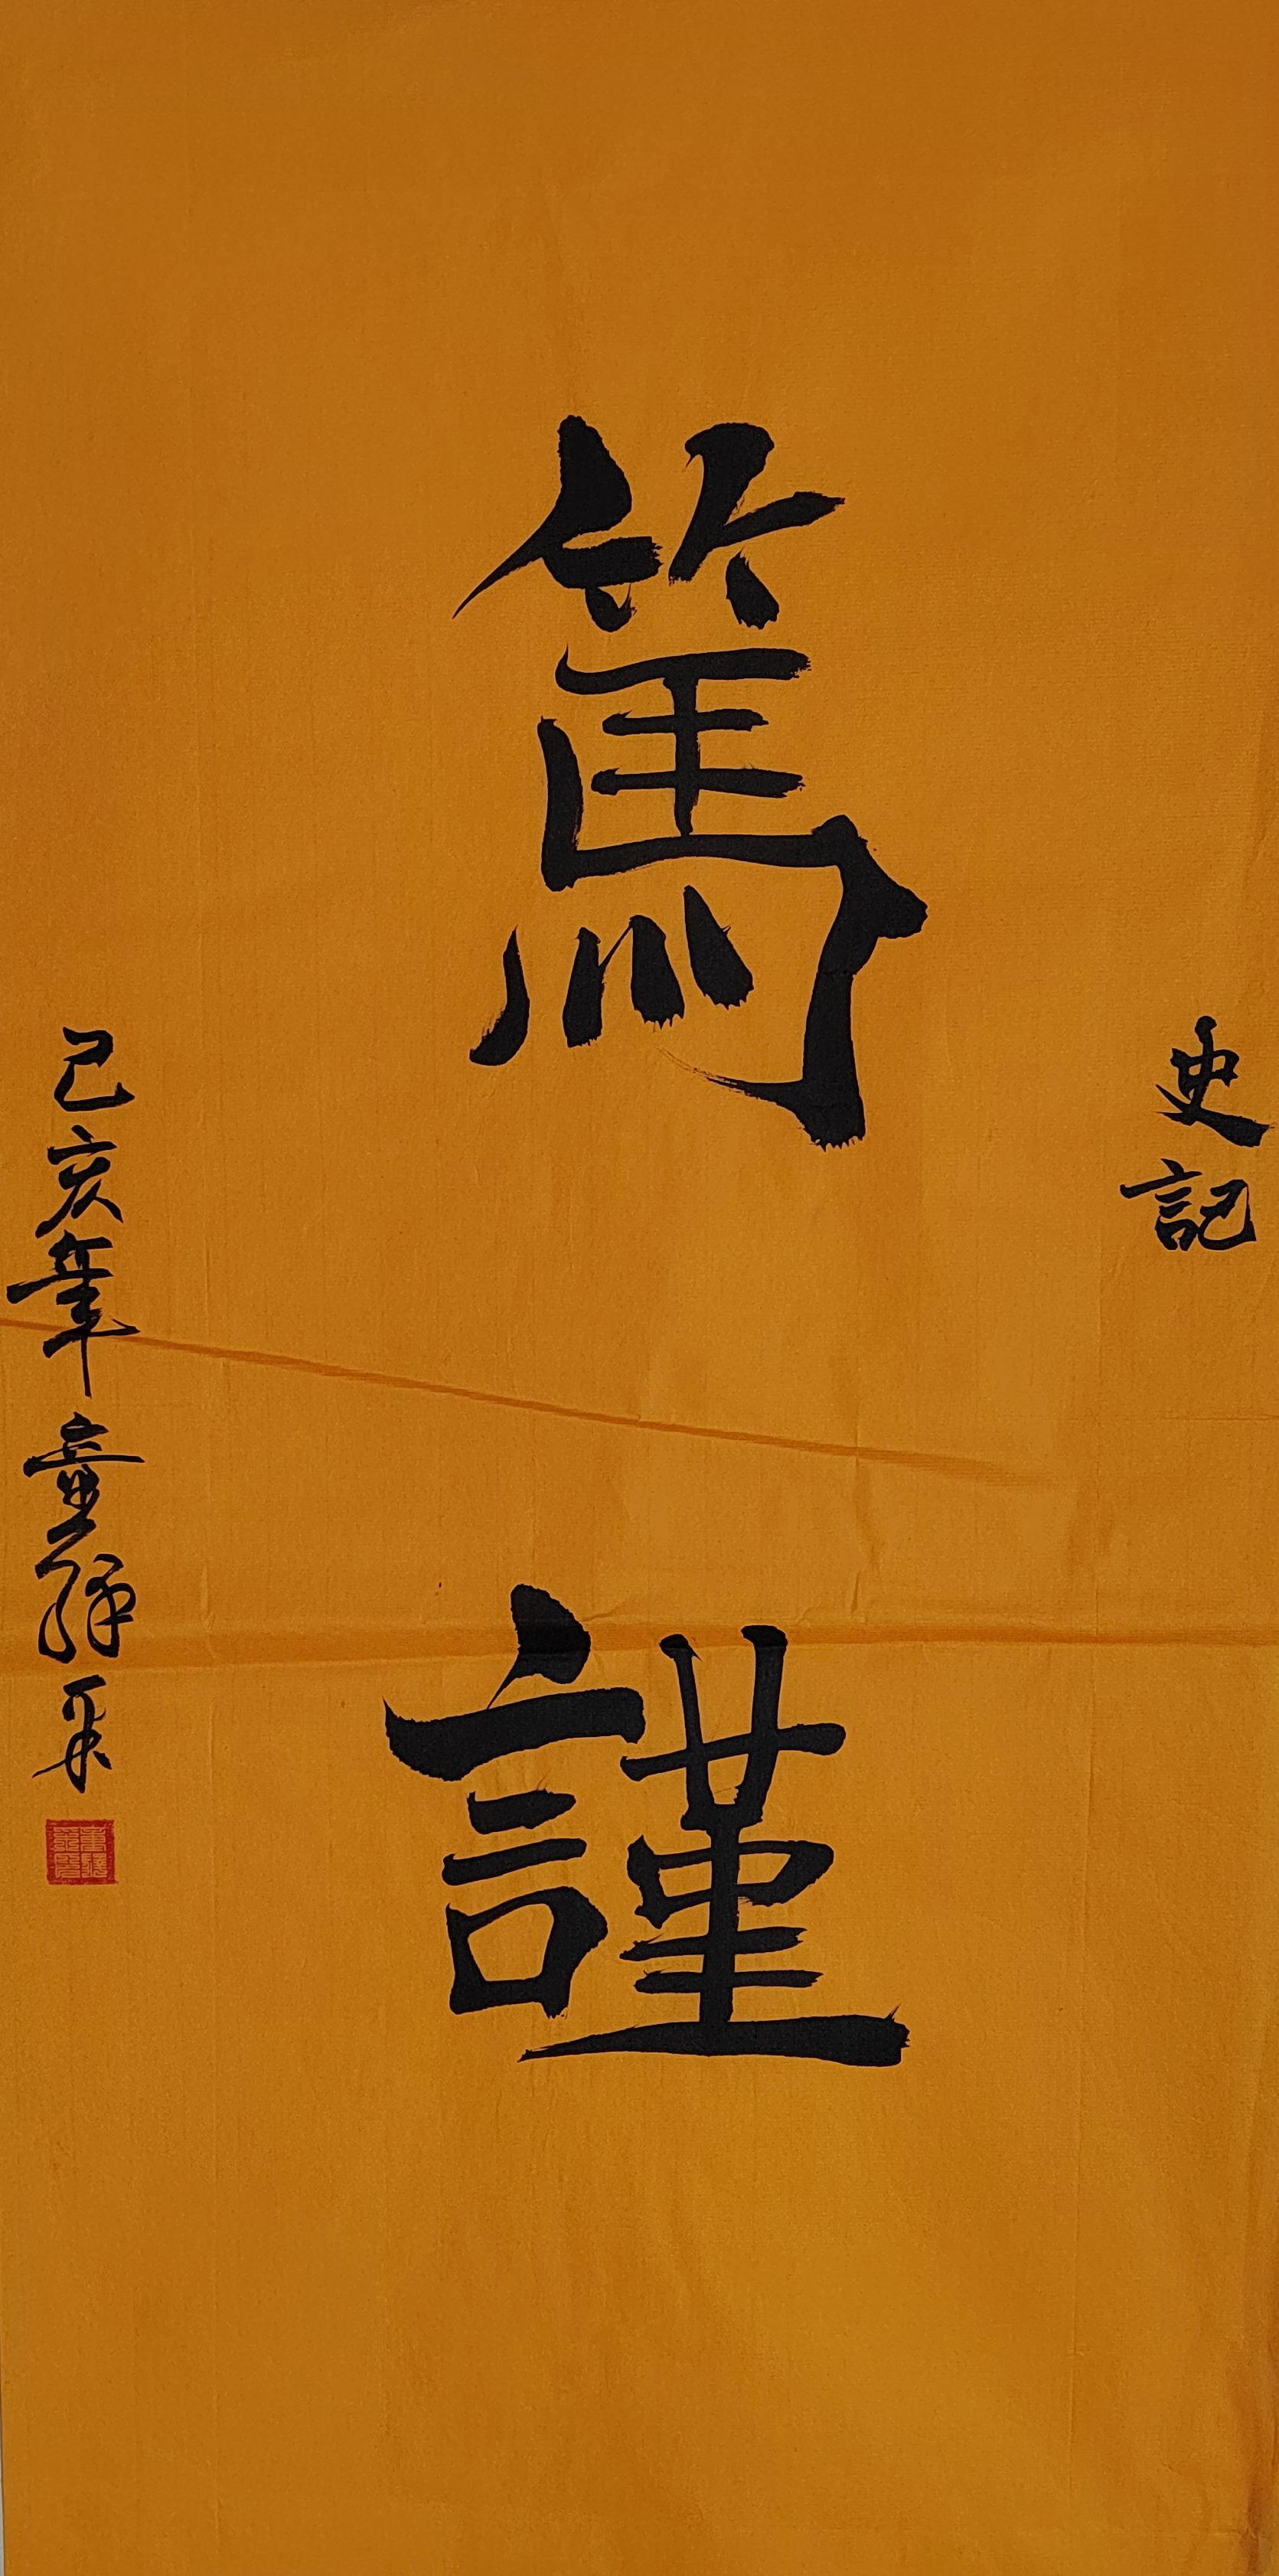 史記
篤謹
己亥年 童繹采